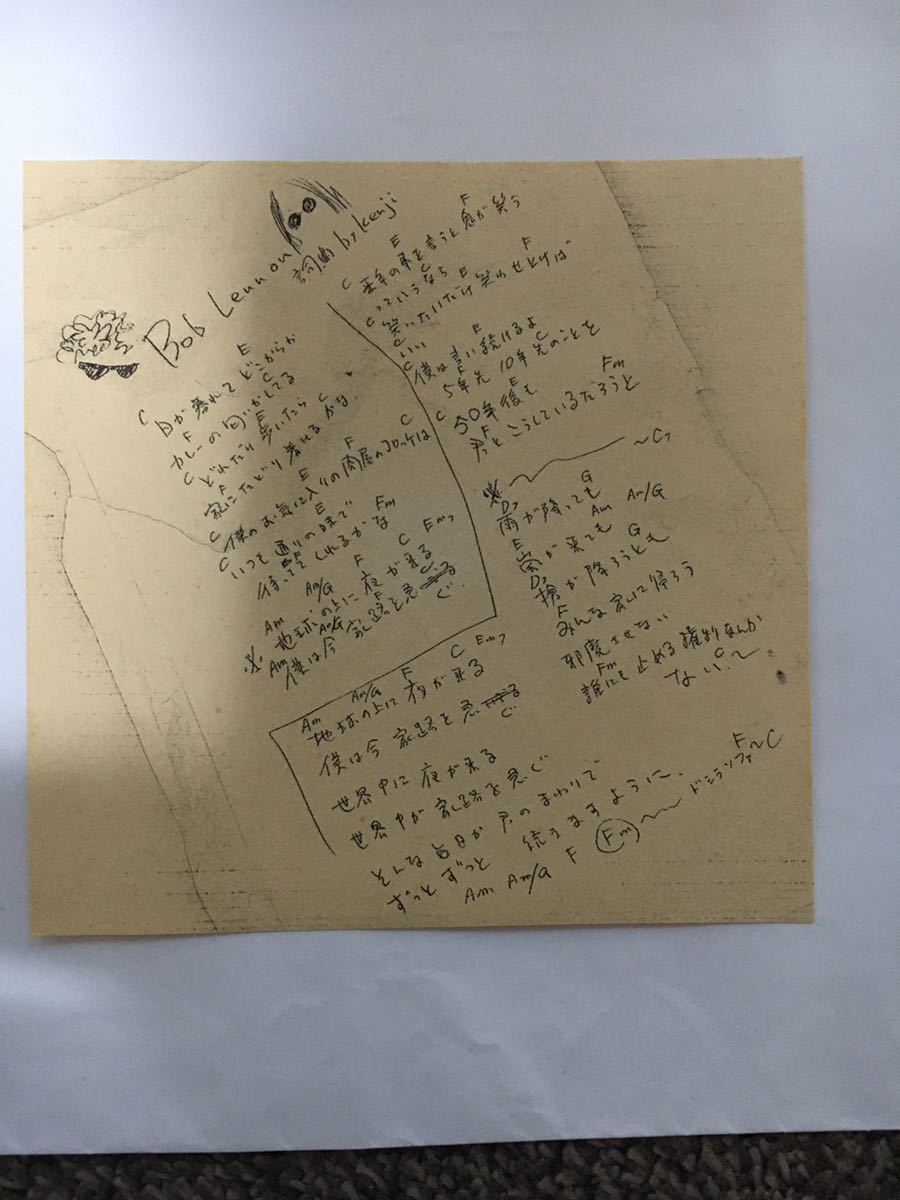 Bob Lennon
詞曲 by kenji
E
C 日が暮れて どこからか
F C
カレーの匂いがしてる
C E
どれだけ歩いたら
F C
家にたどり着けるかな
C E F C
僕のお気に入りの肉屋のコロッケは
C E
いつも通りの味で
F Fm
待っててくれるかな
Am Am/G F C Em7
地球の上に夜が来る
※ Am Am/G F C
僕は今家路を急ぐ
C E F
来年の事を言うと鬼が笑う
C C
っていうなら
C E F
笑いたいだけ笑わせとけば
C
いい
C F
僕は言い続けるよ
F C
5年先 10年先のことを
C E
50年後も
F Fm
君とこうしているだろうと
〜C7
※
D7 G
雨が降っても
E Am Am/G
嵐が来ても
D7 G
槍が降ろうとも
F
みんな家に帰ろう
邪魔させない
Fm
誰にも止める権利なんか
C
ない。〜
Am Am/G F C Em7
地球の上に夜が来る
僕は今家路を急ぐ
世界中に夜が来る
世界中が家路を急ぐ
そんな毎日が君のまわりで
ずっとずっと 続きますように、
Am Am/G F Fm 〜 ドシラソファ〜C
F